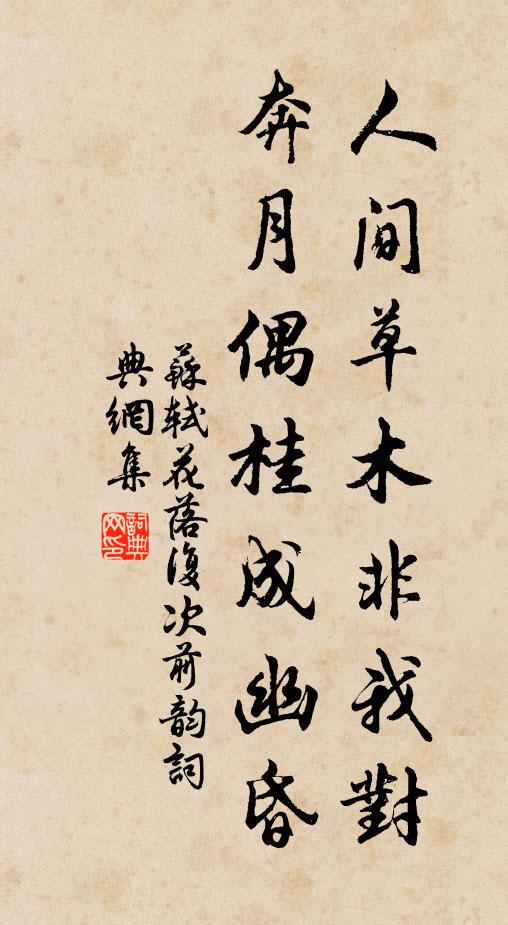 人間草木非我對
奔月偶桂成幽昏
蘇軾花落復次前韵詞
典網集
詞典網印